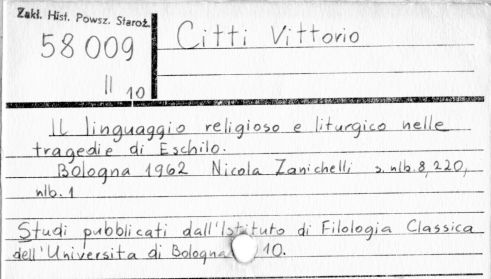 Zakł. Hist. Powsz. Staroż.
58 009
II 10
Citti Vittorio
Il linguaggio religioso e liturgico nelle
tragedie di Eschilo.
Bologna 1962 Nicola Zanichelli s. nlb. 8, 220,
nlb. 1
Studi pubblicati dall'Istituto di Filologia Classica
dell'Universita di Bologna 10.